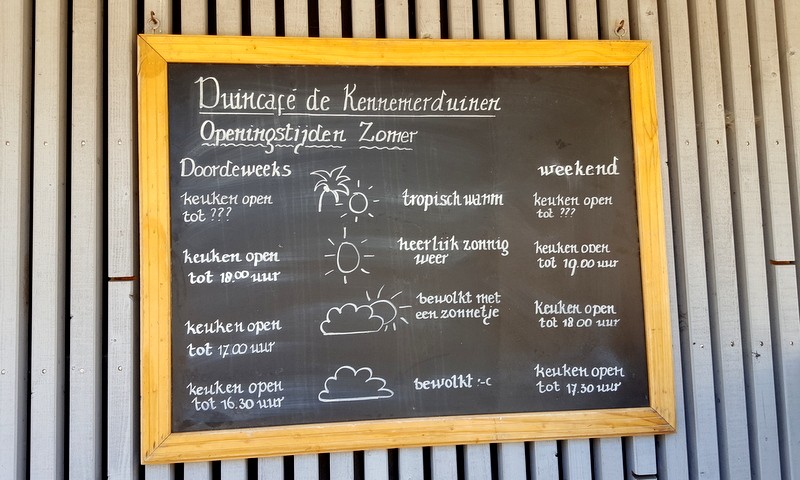 Duincafé de Kennemerduinen
Openingstijden Zomer
Doordeweeks
weekend
keuken open
tot ???
tropisch warm
keuken open
tot ???
keuken open
tot 18.00 uur
heerlijk zonnig
weer
keuken open
tot 19.00 uur
keuken open
tot 17.00 uur
bewolkt met
een zonnetje
keuken open
tot 18.00 uur
keuken open
tot 16.30 uur
bewolkt :-c
keuken open
tot 17.30 uur